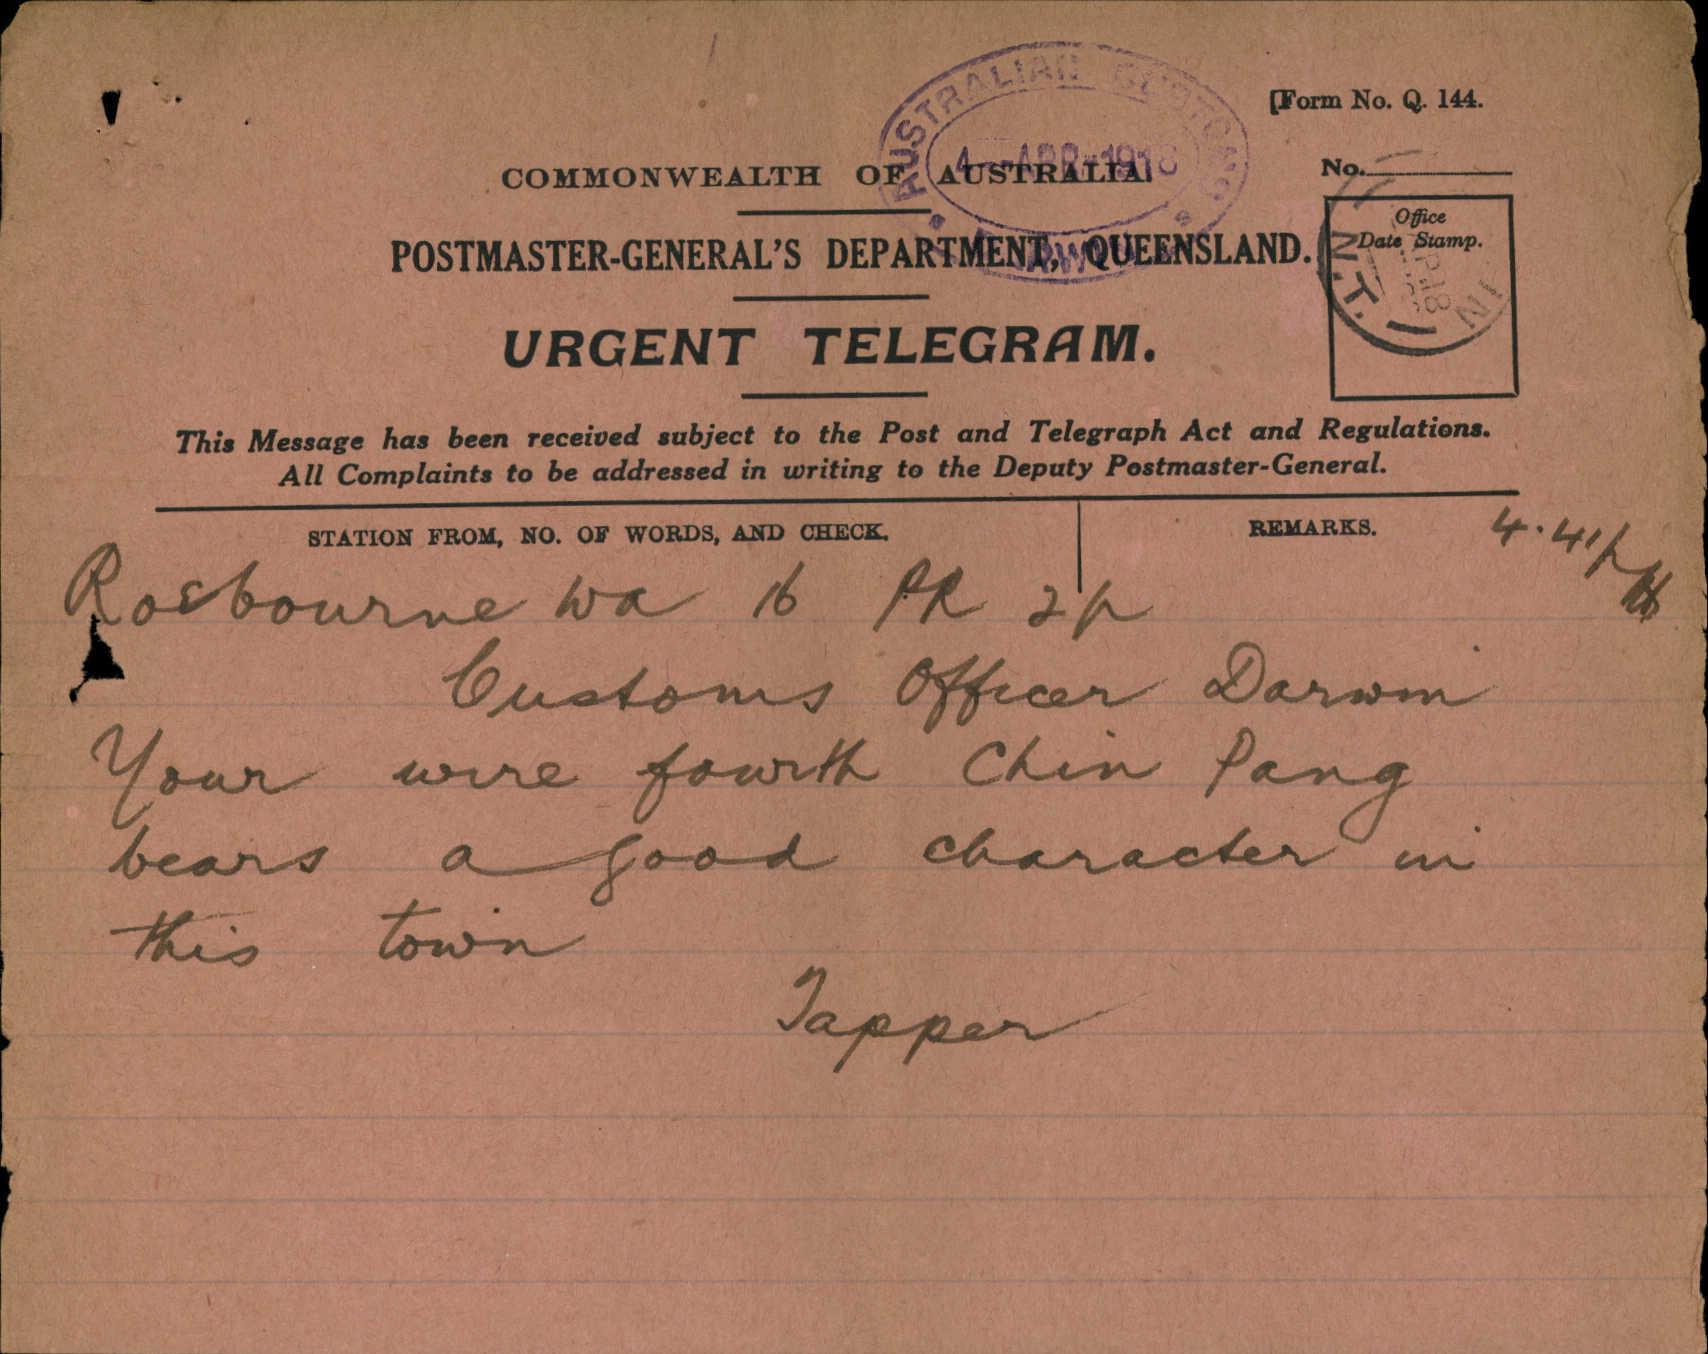 [Form No. Q. 144.
AUSTRALIAN CUSTOMS
4--APR-1918
COMMONWEALTH OF AUSTRALIA.
No.
Office
Date Stamp.
N.T.
POSTMASTER-GENERAL'S DEPARTMENT, QUEENSLAND.
URGENT TELEGRAM.
This Message has been received subject to the Post and Telegraph Act and Regulations.
All Complaints to be addressed in writing to the Deputy Postmaster-General.
STATION FROM, NO. OF WORDS, AND CHECK.
REMARKS.
4.41p
Roebourne Wa 16 PR 2p
Customs Officer Darwin
Your wire fourth Chin Pang
bears a good character in
this town
Tapper